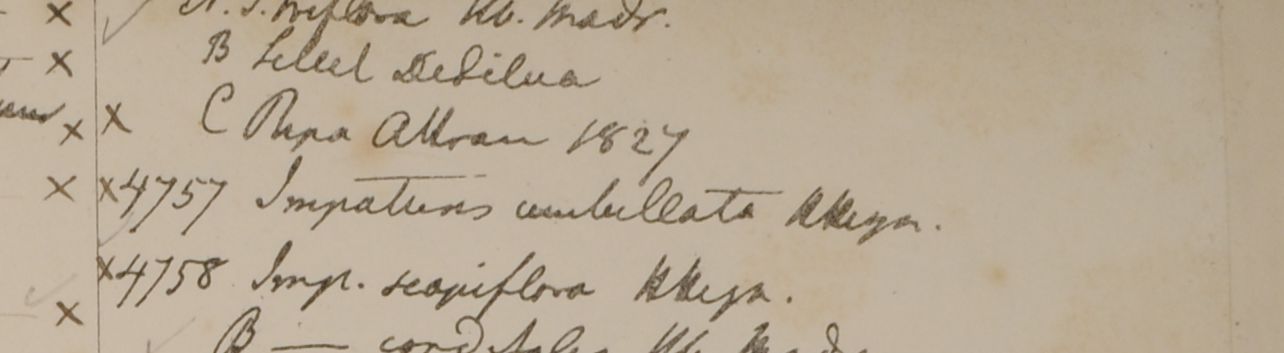 A. I. triflora Hb. Madr.
B Silhet DeSilva
C Prepa Attran 1827
x4757 Impatiens umbellata HHeyn.
x4758 Imp. scapiflora HHeyn.
B — cordifolia Hb. Madr